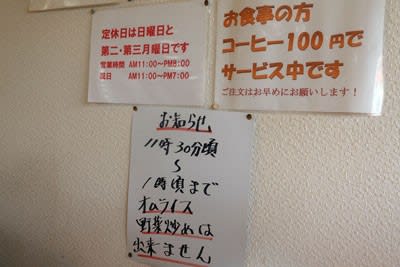 定休日は日曜日と
第二・第三月曜日です
営業時間 AM11:00〜PM8:00
祝日 AM11:00〜PM7:00
お食事の方
コーヒー100円で
サービス中です
ご注文はお早めにお願いします!
お知らせ
11時30分頃
〜
1時頃まで
オムライス
野菜炒めは
出来ません